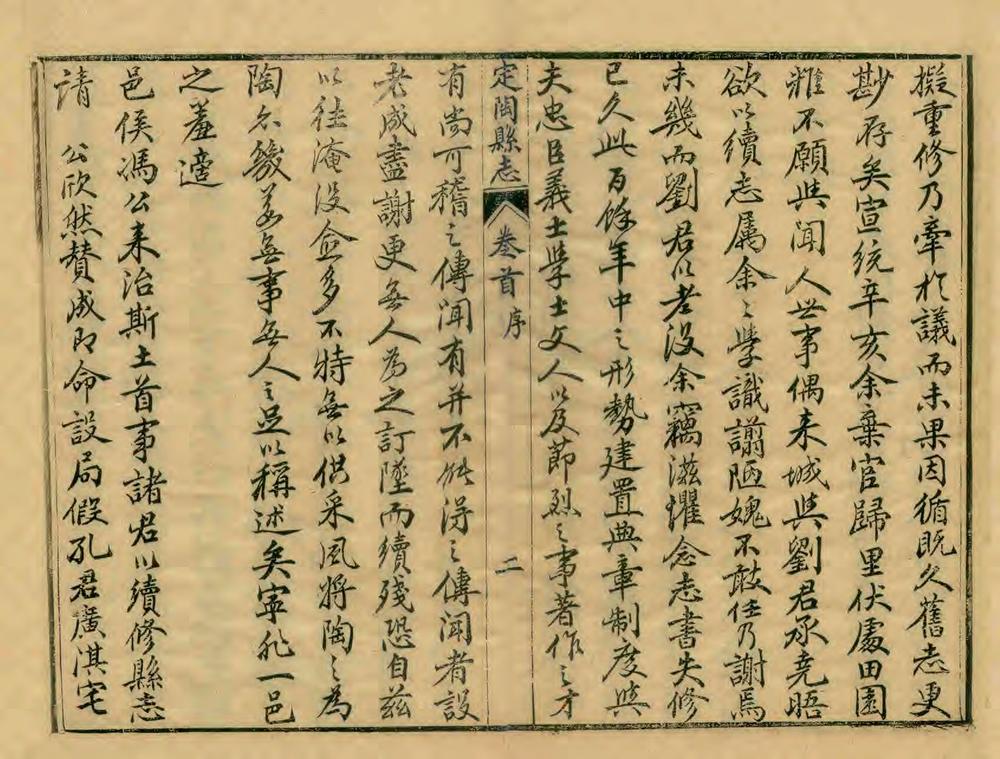 擬重修乃牽於議而未果因循既久舊志更
尠存矣宣統辛亥余棄官歸里伏處田園
雅不願與聞人世事偶来城與劉君承堯晤
欲以續志属余々學識譾陋媿不敢任乃謝焉
未幾而劉君以老没余竊滋懼念志書失修
已久此百餘年中之形勢建置典章制度與
夫忠臣義士學士文人以及節烈之事著作之才
定陶縣志 卷首 序 二
有尚可稽之傳聞有并不能得之傳聞者設
老成盡謝更無人為之訂墜而續殘恐自兹
以往淹没愈多不特無以供采風將陶之為
陶不幾等無事無人之足以稱述矣寧非一邑
之羞適
邑侯馮公来治斯土首事諸君以續修縣志
請 公欣然賛成即命設局假孔君廣淇宅